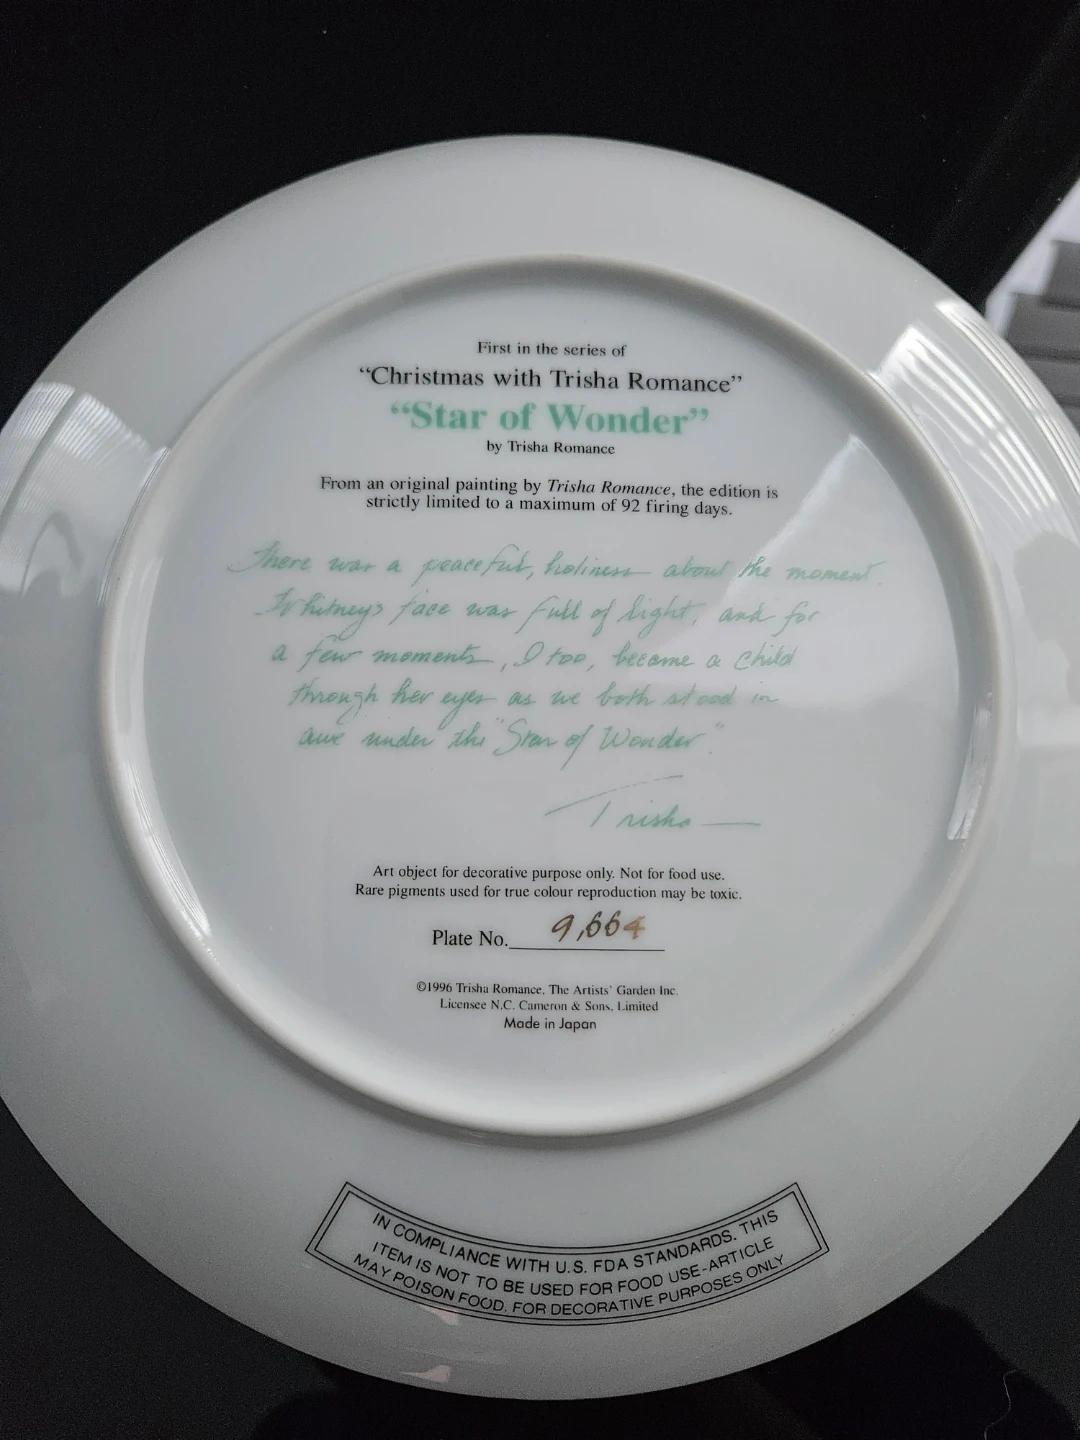 First in the series of
“Christmas with Trisha Romance”
“Star of Wonder”
by Trisha Romance
From an original painting by Trisha Romance, the edition is
strictly limited to a maximum of 92 firing days.
There was a peaceful, holiness about the moment.
Whitney's face was full of light, and for
a few moments, I too, became a child
through her eyes as we both stood in
awe under the "Star of Wonder".
Trisha
Art object for decorative purpose only. Not for food use.
Rare pigments used for true colour reproduction may be toxic.
Plate No. 9,664
©1996 Trisha Romance, The Artists' Garden Inc.
Licensee N.C. Cameron & Sons, Limited
Made in Japan
IN COMPLIANCE WITH U.S. FDA STANDARDS. THIS
ITEM IS NOT TO BE USED FOR FOOD USE-ARTICLE
MAY POISON FOOD. FOR DECORATIVE PURPOSES ONLY